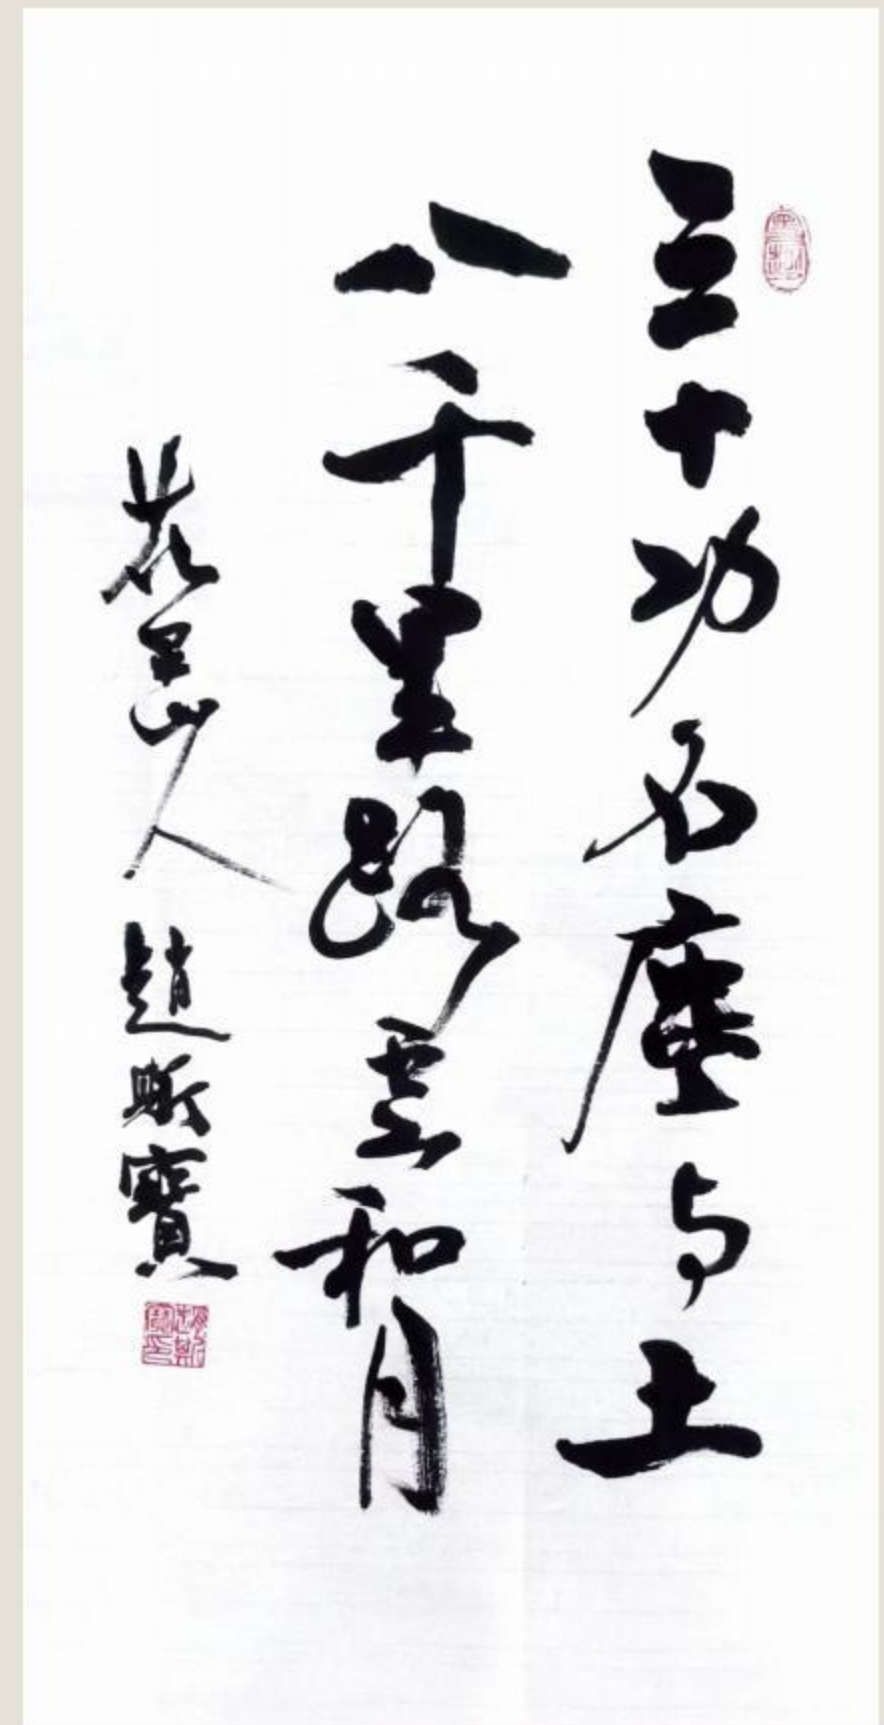 三十功名塵与土
八千里路云和月
花果山人 趙斯寶